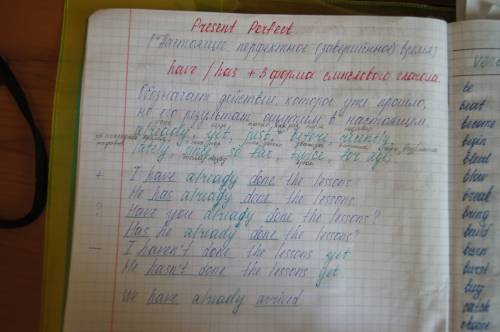 Present Perfect
(Настоящее перфектное (завершённое) время)
have / has + 3 форма смыслового глагола
Обозначает действие, которое уже прошло,
но его результат ощутим в настоящем.
already, yet, just, before, recently,
lately, since, so far, twice, for ages
+ I have already done the lessons.
He has already done the lessons.
? Have you already done the lessons?
Has he already done the lessons?
— I haven't done the lessons yet
He hasn't done the lessons yet
We have already arrived
be
beat
become
begin
bleed
blow
break
bring
build
burn
burst
buy
catch
choose